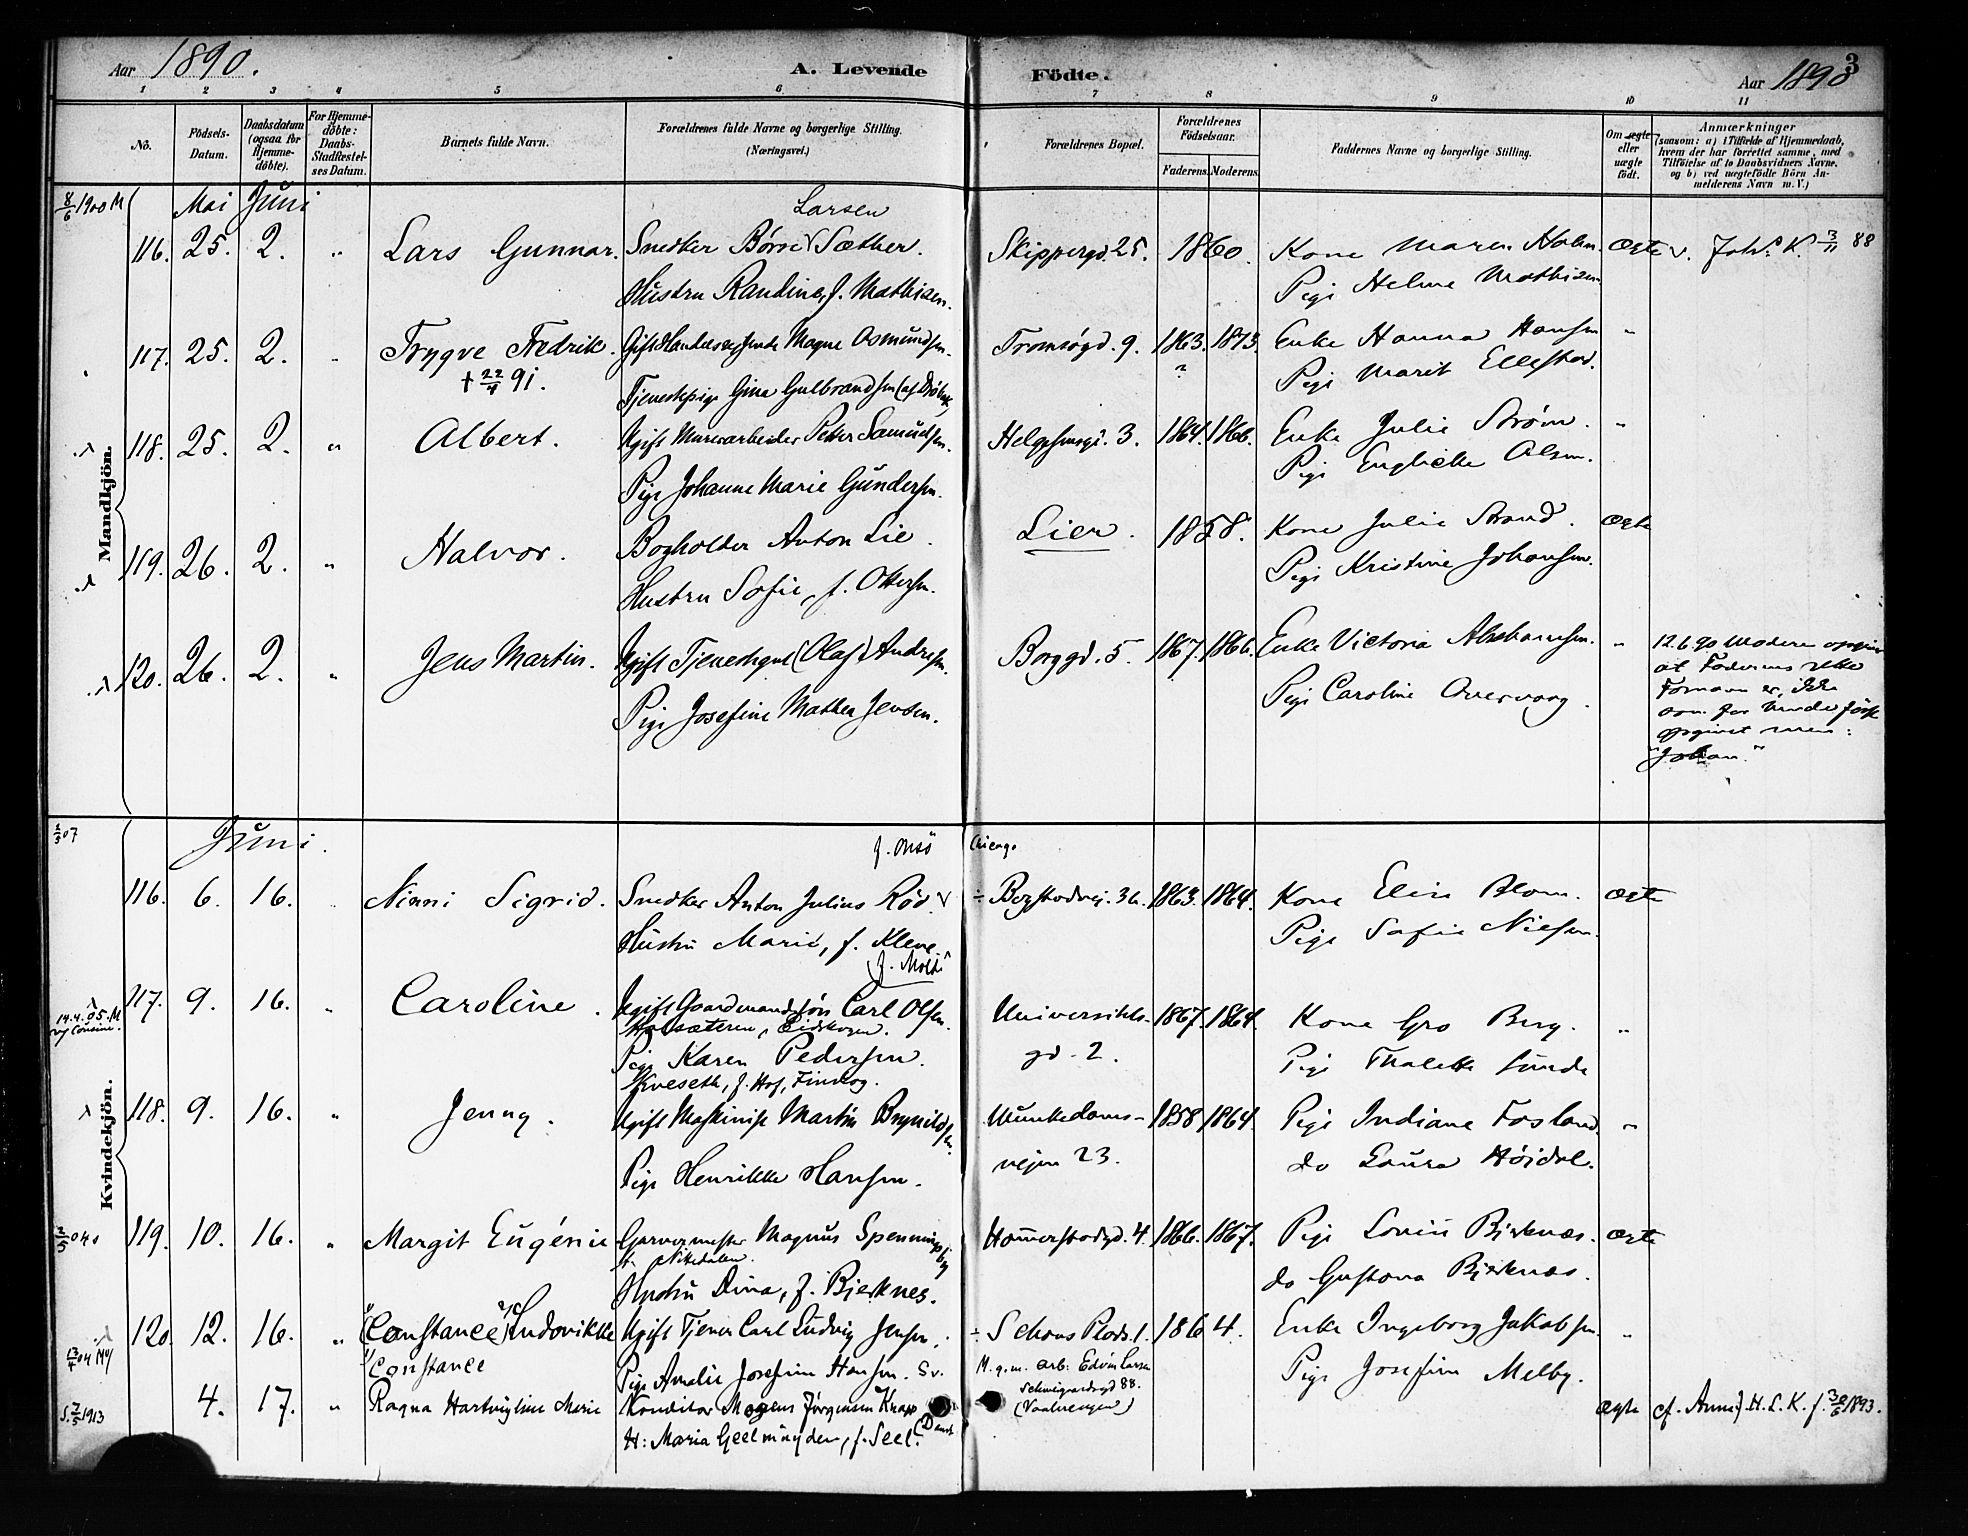 Aar 1890.
A. Levende Födte.
Aar 1890
3
1 2 3 4 5 6 7 8 9 10 11
No.
Födsels-Datum.
Daabsdatum (ogsaa for Hjemme-döbte).
For Hjemme-döbte: Daabs-Stadfæstel-ses Datum.
Barnets fulde Navn.
Forældrenes fulde Navne og borgerlige Stilling. (Næringsvei.)
Forældrenes Bopæl.
Forældrenes Födselsaar.
Faderens. Moderens.
Faddernes Navne og borgerlige Stilling.
Om ægte eller uægte födt.
Anmærkninger
(saasom: a) i Tilfælde af Hjemmedaab,
hvem der har forrettet samme, med
Tilföielse af to Daabsvidners Navne,
og b) ved uægtefödte Börn An-
melderens Navn m. V.)
Mandkjön.
8/6 1900 M
Mai Juni
Larsen
116. 25. 2. " Lars Gunnar. Snedker Børre Sæther. Skippergd. 25. 1860. Kone Maren Holm. Ægte v. Joh.s K. 3/11 88
Hustru Randine, f. Mathisen. Pige Helma Mathisen
117. 25. 2. " Trygve Fredrik. Gift Handelsreisende Magne Osmundsen. Tromsøgd. 9. 1863. 1873. Enke Hanna Hansen "
+ 22/4 91. Tjenestepige Gina Gulbrandsen (af Drøbak) ? Pige Marit Ellefstad.
118. 25. 2. " Albert. Ugift Murerarbeider Petter Samuelsen. Helgesensgd. 3. 1864. 1866. Enke Julie Strøm. "
Pige Johanne Marie Gundersen. Pige Englikke Olsen.
119. 26. 2. " Halvor. Bogholder Anton Lie. Lier. 1858. Kone Julie Strand. Ægte
Hustru Sofie, f. Ottersen. Pige Kristine Johansen.
120. 26. 2. " Jens Martin. Ugift Tjenestegut (Olaf) Andresen. Borggd. 5. 1867. 1866. Enke Victoria Abrahamsen. " 12.6.90 Modere opgiver
Pige Josefine Mathea Jensen. Pige Caroline Overvaag. at Faderens rette
Fornavn er, ikke
som før
opgivet men:
"Johan."
Kvindekjön.
07
Juni.
Chicago
116. 6. 16. Ninni Sigrid. Snedker Anton Julius Rød. ÷ Bogstadvej. 36. 1863. 1864. Kone Elise Blom. Ægte
Hustru Marie, f. Kleve. Pige Sofie Nielsen.
14.4.05. M
m/ Cousine.
117. 9. 16. " Caroline. Ugift Gaardmandssøn Carl Olsen. Universitets- 1867. 1864. Kone Gro Berg. "
Eidskogen. gd. 2. Pige Thalette Sunde
Pige Karen Pedersen.
Kveseth, f. Hof, Finskog.
118. 9. 16. " Jenny. Ugift Maskinist Martin Brynildsen. Munkedams- 1858 1864. Pige Indiane Fosland. "
Pige Henrikke Hansen. vejen 23. do Laura Høidal.
119. 10. 16. " Margit Eugénie Garvermester Magnus Spenningsby Hammerstadgd. 4. 1866. 1867. Pige Lovise Bjerknæs. Ægte
Nitedalen.
Hustru Dina, f. Bjerknes. do Gustava Bjerknæs.
120. 12. 16. " (Constance) Ludovikke Ugift Tjener Carl Ludvig Jensen. ÷ Schous Plads. 1. 1864. Enke Ingeborg Jakobsen. "
"Constance Pige Amalie Josefine Hansen. Sv. M. g. m. arb: Edvin Larsen Pige Josefine Melby.
Schweigaardsgd 88.
(Vaalerengen)
S. 7/5 1913
4. 17. " Ragna Hartvigline Marie Konditor Mogens Jörgensen Knapp Ægte cf. Anm.) H. L. K. f. 30/6 1893.
H: Maria Geelmuyden, f. Seel. (Dansk